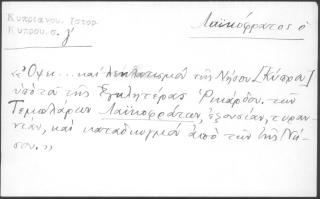 Κυπριανου. Ιστορ.
Κυπρου. σ. γ'
Λαϊκόφρατος ὁ
«Ὄψη... καὶ λεηλατισμοί τῆς Νήσου [Κύπρου]
ὑπὸ τὰ τῆς Ἐγκλητέρας Ῥικάρδου. τῶν
Τεμπλάρων Λαϊκοφράτων, ἐξουσίαν, τυραν-
νίαν, καὶ καταδιωγμοί ἀπὸ τῶν τῆς Νή-
σου.»